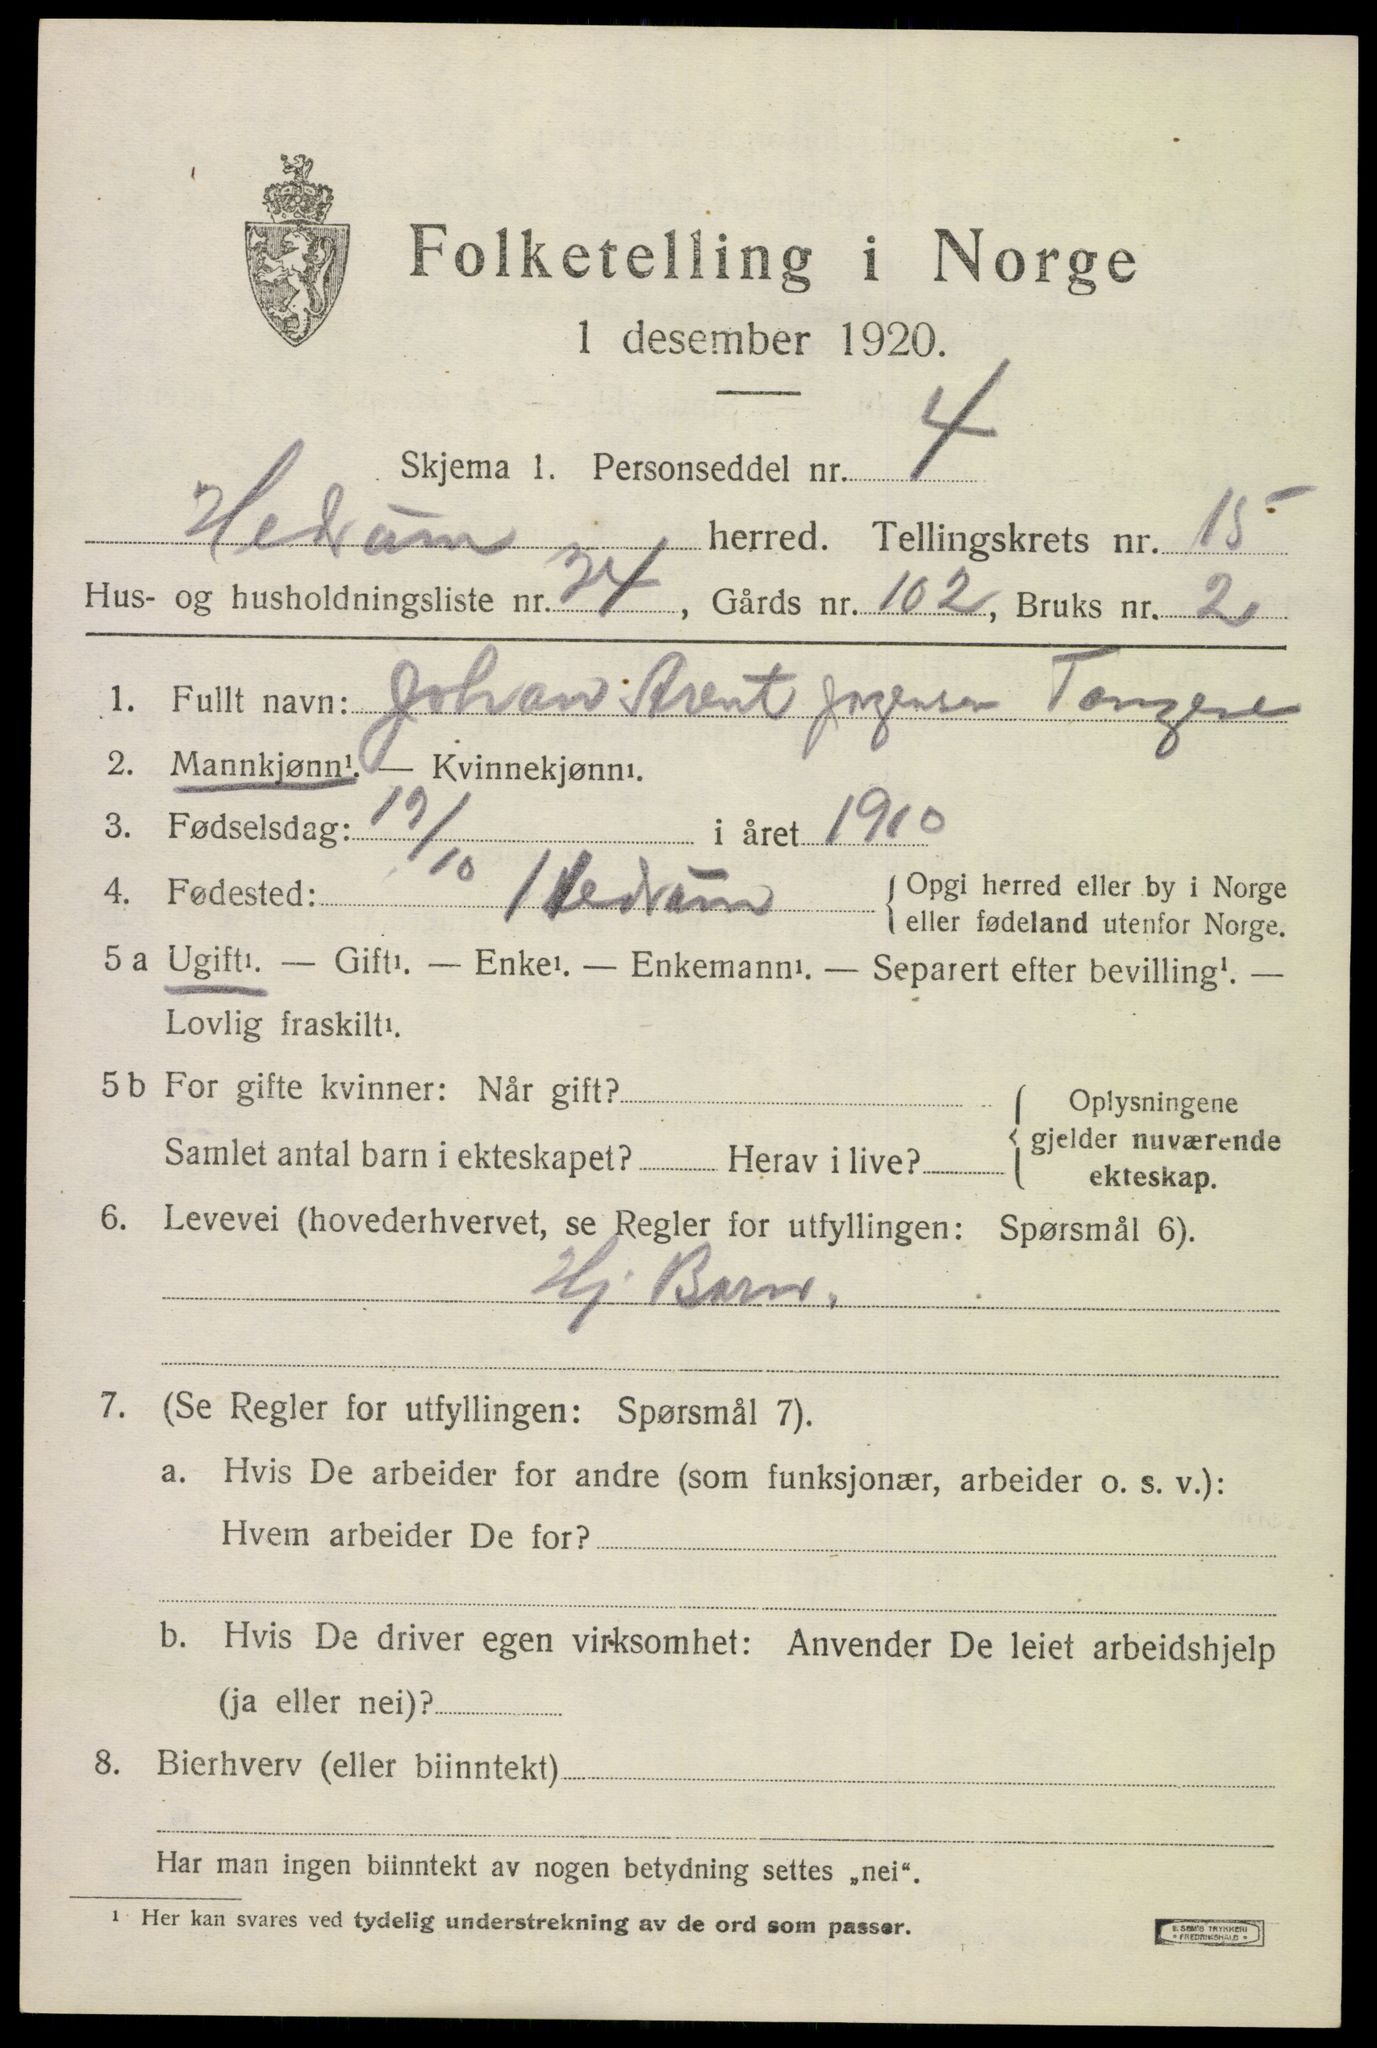 Folketelling i Norge
1 desember 1920.
Skjema 1. Personseddel nr. 4
Hedrum herred. Tellingskrets nr. 15
Hus- og husholdningsliste nr. 34, Gårds nr. 102, Bruks nr. 2
1. Fullt navn: Johan Arent Jørgensen Tangene
2. Mannkjønn¹. — Kvinnekjønn¹.
3. Fødselsdag: 19/10 i året 1910
4. Fødested: Hedrum { Opgi herred eller by i Norge
eller fødeland utenfor Norge.
5 a Ugift¹. — Gift¹. — Enke¹. — Enkemann¹. — Separert efter bevilling¹. —
Lovlig fraskilt¹.
5 b For gifte kvinner: Når gift? { Oplysningene
gjelder nuværende
Samlet antal barn i ekteskapet? Herav i live?
ekteskap.
6. Levevei (hovederhvervet, se Regler for utfyllingen: Spørsmål 6).
Hj. Barn.
7. (Se Regler for utfyllingen: Spørsmål 7).
a. Hvis De arbeider for andre (som funksjonær, arbeider o. s. v.):
Hvem arbeider De for?
b. Hvis De driver egen virksomhet: Anvender De leiet arbeidshjelp
(ja eller nei)?
8. Bierhverv (eller biinntekt)
Har man ingen biinntekt av nogen betydning settes „nei“.
¹ Her kan svares ved tydelig understrekning av de ord som passer.
E. SEM'S TRYKKERI
* FREDRIKSHALD *